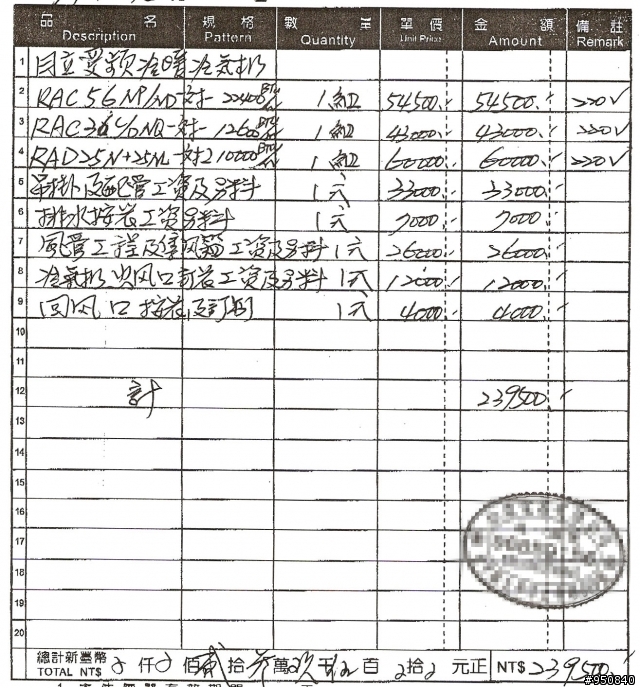 品名 Description 規格 Pattern 數量 Quantity 單價 Unit Price 金額 Amount 備註 Remark
1 日立變頻冷暖冷氣機
2 RAC 56NP/ND 一對一 22400 BTU 1組 54500 54500 220V
3 RAC 36 NQ 一對一 12600 BTU 1組 43000 43000 220V
4 RAD 25N+25NL 一對2 10000 BTU 1組 60000 60000 220V
5 吊掛及配管工資及另料 1式 33000 33000
6 排水按裝工資另料 1式 7000 7000
7 風管工程及集风箱工資及另料 1式 26000 26000
8 冷氣機出风口訂裝工資及另料 1式 12000 12000
9 回风口按裝及訂制 1式 4000 4000
10
11
12 計 239500
13
14
15
16
17
18
19
20
總計新臺幣 TOTAL NT$ 仟 佰 貳 拾 參 萬 玖 千 伍 百 拾 元正 NT$ 239500
#950840